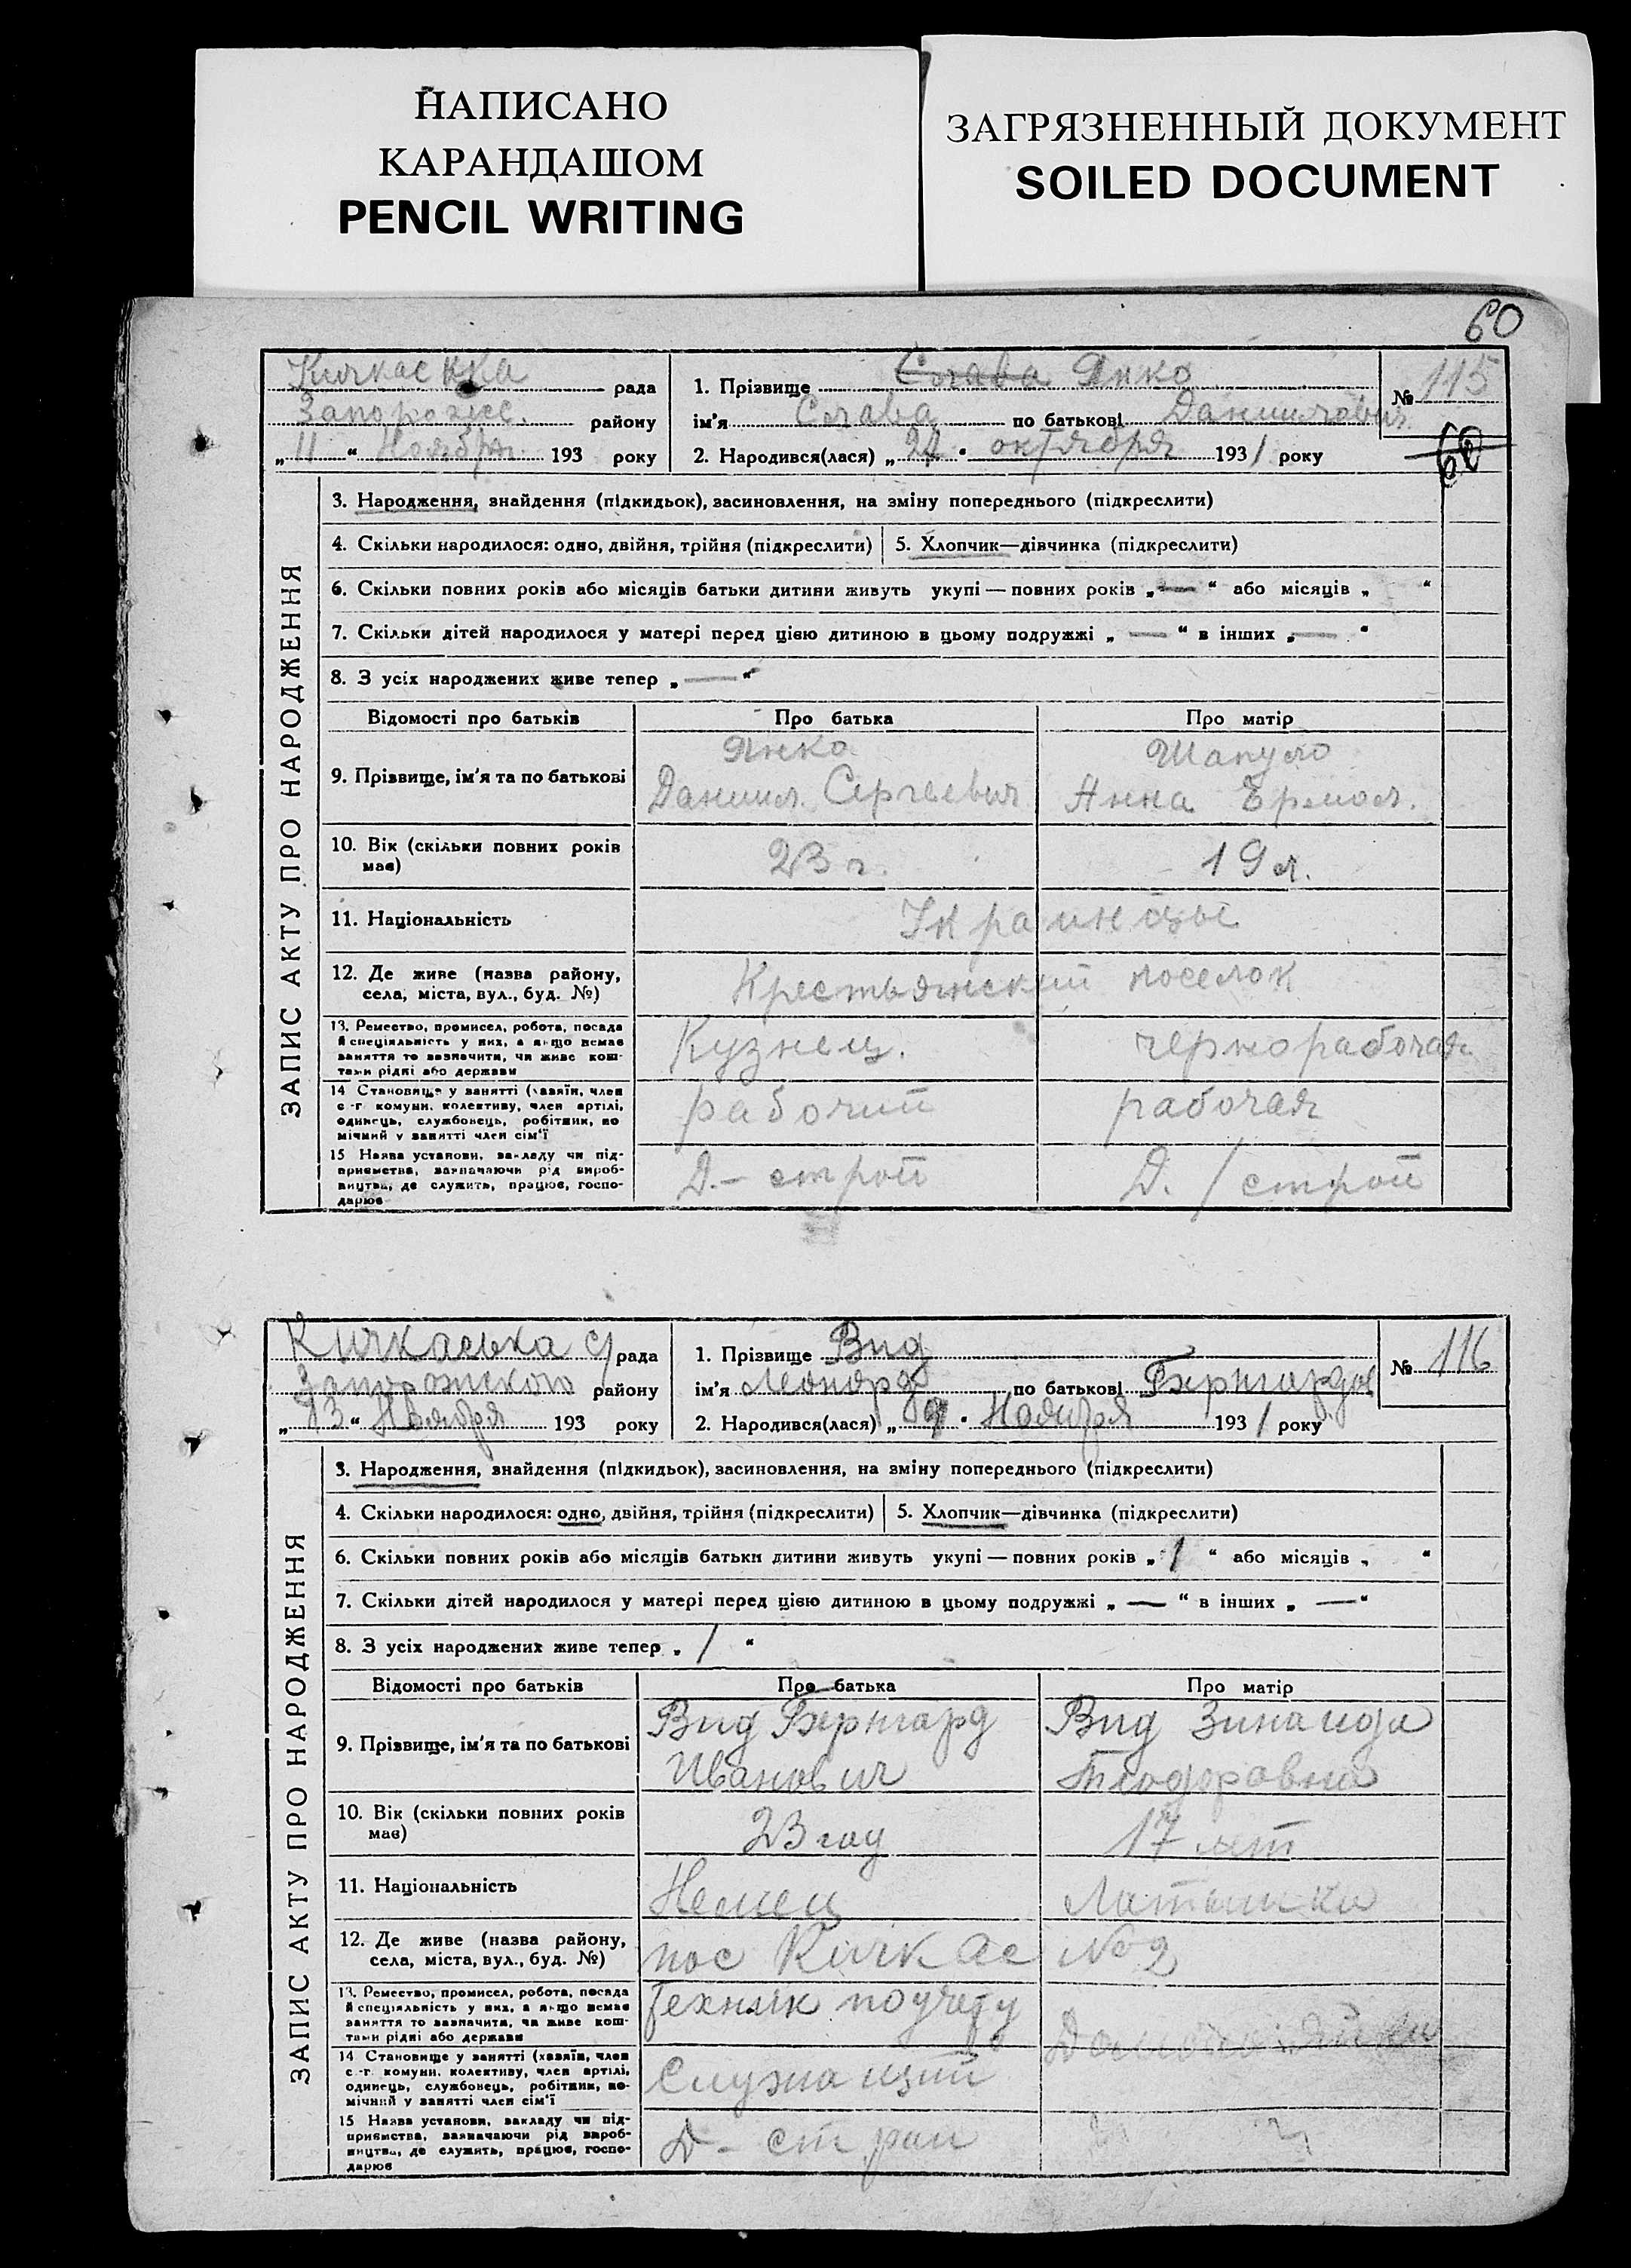 НАПИСАНО
КАРАНДАШОМ
PENCIL WRITING
ЗАГРЯЗНЕННЫЙ ДОКУМЕНТ
SOILED DOCUMENT
60
Кичкаська рада
Запорожс. району
„11“ Ноября 193 року
1. Прізвище Слава Янко
ім'я Слава по батькові Даниилович
2. Народився(лася) „24“ октября 1931 року
№ 115
60
ЗАПИС АКТУ ПРО НАРОДЖЕННЯ
3. Народження, знайдення (підкидьок), засиновлення, на зміну попереднього (підкреслити)
4. Скільки народилося: одно, двійня, трійня (підкреслити) 5. Хлопчик—дівчинка (підкреслити)
6. Скільки повних років або місяців батьки дитини живуть укупі — повних років „—“ або місяців „ “
7. Скільки дітей народилося у матері перед цією дитиною в цьому подружжі „—“ в інших „—“
8. З усіх народжених живе тепер „—“
Відомості про батьків Про батька Про матір
9. Прізвище, ім'я та по батькові
Янко Шапуло
Даниил Сергеевич Анна Ермол.
10. Вік (скільки повних років має) 23 г. 19 л.
11. Національність Украинцы
12. Де живе (назва району, села, міста, вул., буд. №) Крестьянский поселок
13. Ремество, промисел, робота, посада
й спеціяльність у них, а якщо немає
заняття то зазначити, чи живе кош-
тами рідні або держави
Кузнец. чернорабочая
14 Становище у занятті (хазяїн, член
с.-г. комуни, колективу, член артілі,
одинець, службовець, робітник, по
мічний у занятті член сім'ї
рабочий рабочая
15 Назва установи, закладу чи під-
приємства, зазначаючи рід вироб-
ництва, де служить, працює, госпо-
дарює
Д.— строй Д. / строй
Кичкаська с/рада
Запорожского району
„13“ Ноября 193 року
1. Прізвище Вид
ім'я Леонард по батькові Бернгардов
2. Народився(лася) „9“ Ноября 1931 року
№ 116
ЗАПИС АКТУ ПРО НАРОДЖЕННЯ
3. Народження, знайдення (підкидьок), засиновлення, на зміну попереднього (підкреслити)
4. Скільки народилося: одно, двійня, трійня (підкреслити) 5. Хлопчик—дівчинка (підкреслити)
6. Скільки повних років або місяців батьки дитини живуть укупі — повних років „1“ або місяців „ “
7. Скільки дітей народилося у матері перед цією дитиною в цьому подружжі „—“ в інших „—“
8. З усіх народжених живе тепер „1“
Відомості про батьків Про батька Про матір
9. Прізвище, ім'я та по батькові
Вид Бернгард Вид Зинаида
Иванович Теодоровна
10. Вік (скільки повних років має) 23 год 17 лет
11. Національність Немец Латышка
12. Де живе (назва району, села, міста, вул., буд. №) пос Кичкас No 2
13. Ремество, промисел, робота, посада
й спеціяльність у них, а якщо немає
заняття то зазначити, чи живе кош-
тами рідні або держави
Технік по учету
14 Становище у занятті (хазяїн, член
с.-г. комуни, колективу, член артілі,
одинець, службовець, робітник, по-
мічний у занятті член сім'ї
Служащий
15 Назва установи, закладу чи під-
приємства, зазначаючи рід вироб-
ництва, де служить, працює, госпо-
дарює
Д — строи